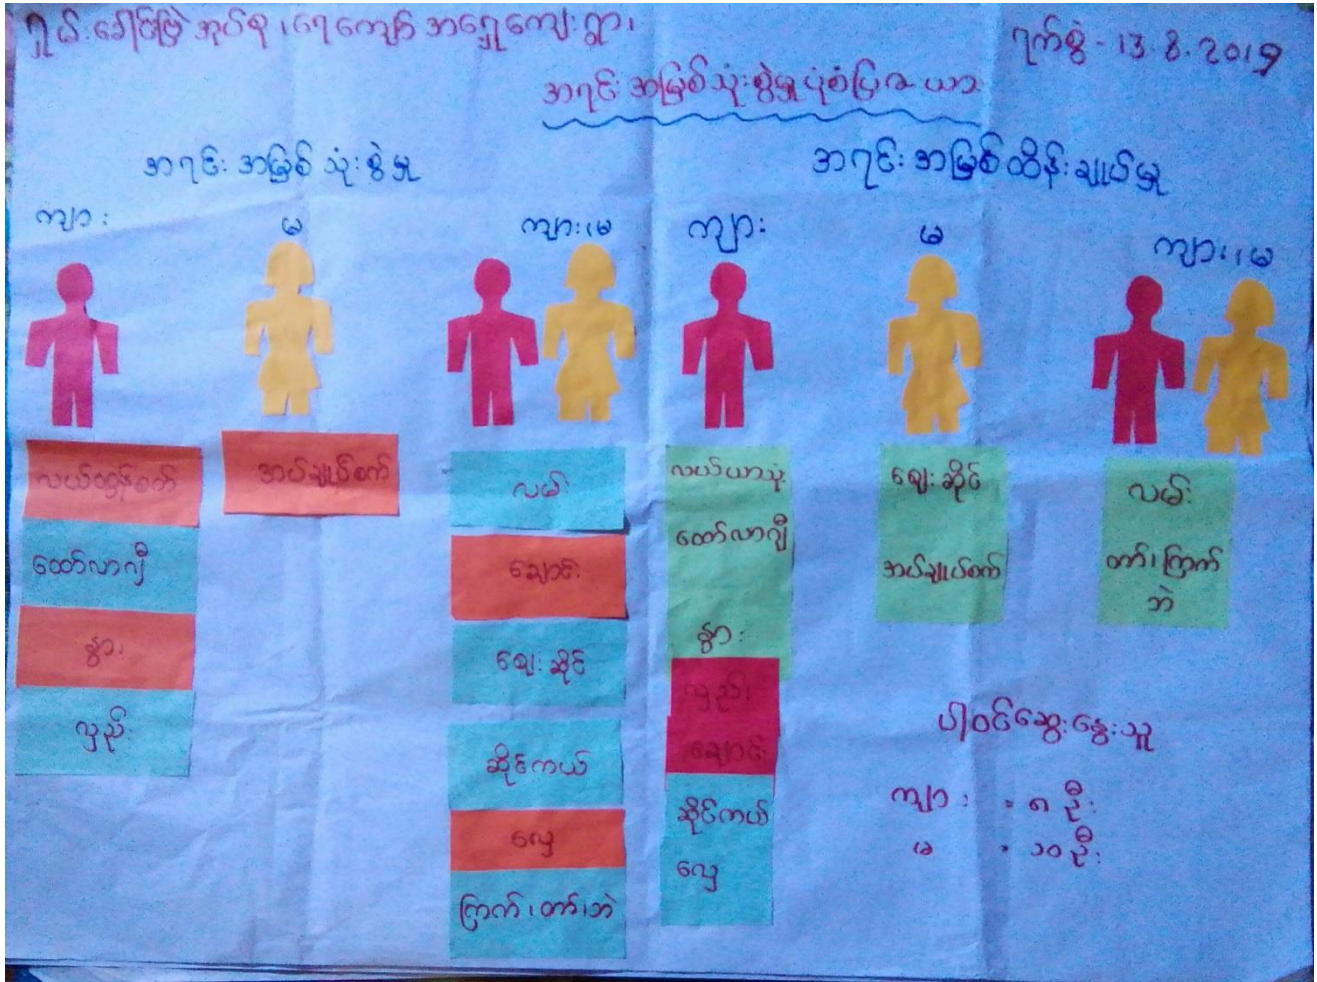 ရှမ်းခေါင်ဖြဲ အုပ်စု၊ ရေကျော် အရှေ့ကျေးရွာ၊
ရက်စွဲ - 13.8.2019
အရင်းအမြစ်သုံးစွဲမှုပုံစံပြဇယား
အရင်းအမြစ် သုံးစွဲမှု
အရင်းအမြစ်ထိန်းချုပ်မှု
ကျား
မ
ကျား၊မ
ကျား
မ
ကျား၊မ
လယ်ထွန်စက်
ထော်လာဂျီ
နွား
လှည်း
အပ်ချုပ်စက်
လမ်း
ချောင်း
ဈေးဆိုင်
ဆိုင်ကယ်
လှေ
ကြက်၊ဝက်၊ဘဲ
လယ်ယာသုံး
ထော်လာဂျီ
နွား
လှည်း
ချောင်း
ဆိုင်ကယ်
လှေ
ဈေးဆိုင်
အပ်ချုပ်စက်
လမ်း
ဝက်၊ကြက်
ဘဲ
ပါဝင်ဆွေးနွေးသူ
ကျား = ၈ ဦး
မ = ၁၀ ဦး